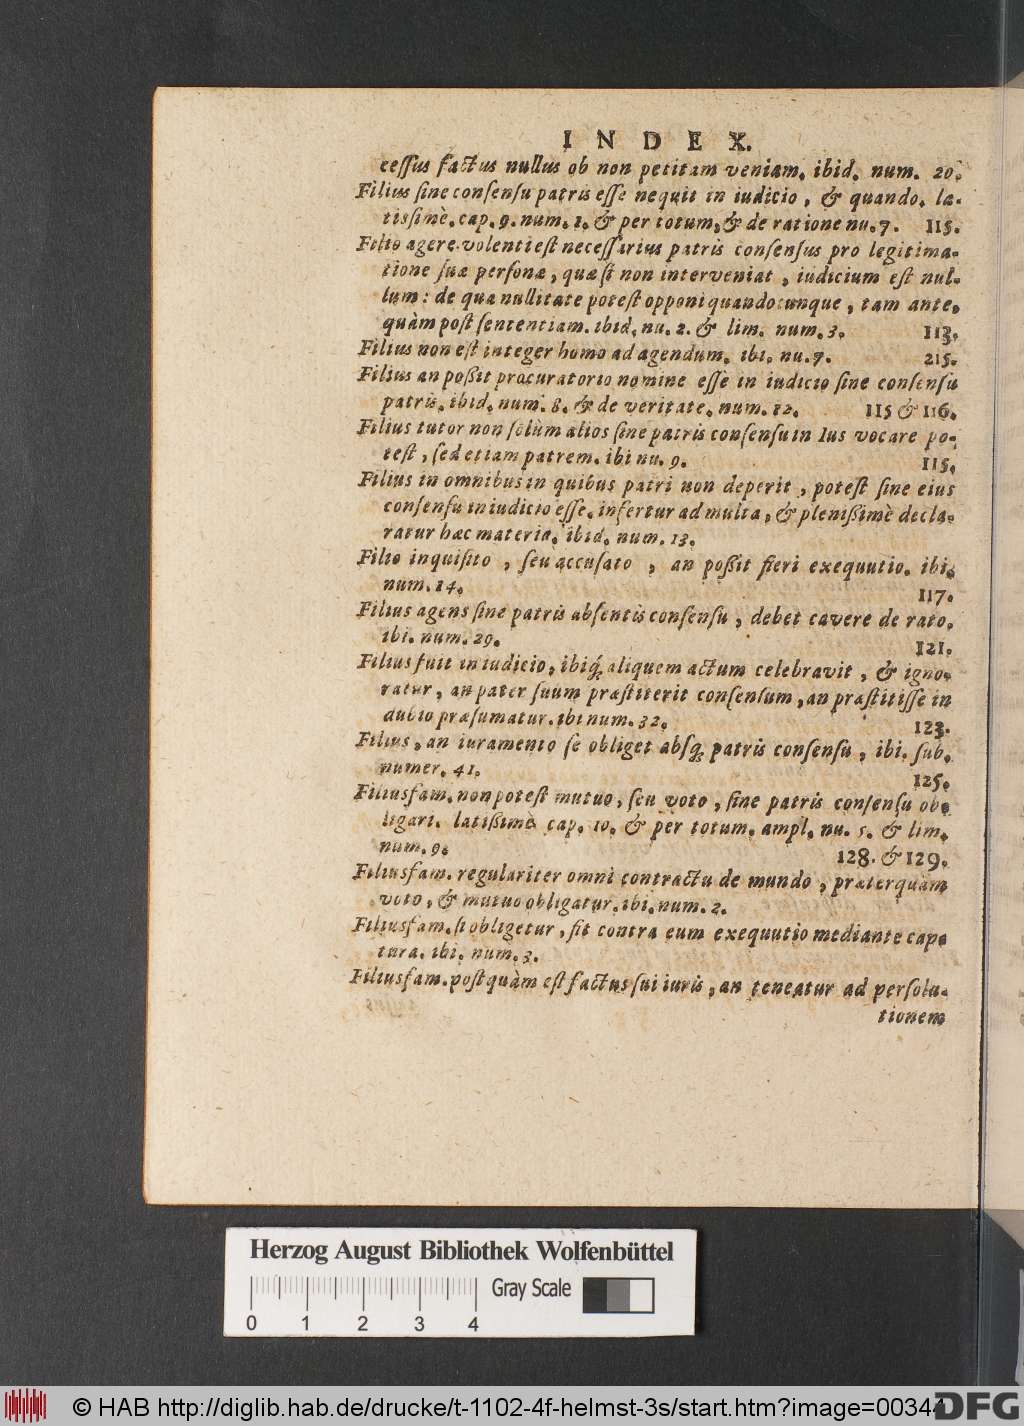 INDEX.
ceſſus factus nullus ob non petitam veniam. ibid. num. 20.
Filius ſine conſenſu patris eſſe nequit in iudicio, & quando. la-
tisſimè. cap. 9. num. 1. & per totum, & de ratione nu. 7. 115.
Filio agere volenti eſt neceſſarius patris conſenſus pro legitima-
tione ſuæ perſonæ, quæ ſi non interveniat, iudicium eſt nul-
lum: de qua nullitate poteſt opponi quandocunque, tam ante,
quàm poſt ſententiam. ibid. nu. 2. & lim. num. 3. 113.
Filius non eſt integer homo ad agendum. ibi. nu. 7. 215.
Filius an poßit procuratorio nomine eſſe in iudicio ſine conſenſu
patris. ibid. num. 8. & de veritate. num. 12. 115 & 116.
Filius tutor non ſolùm alios ſine patris conſenſu in Ius vocare po-
teſt, ſed etiam patrem. ibi nu. 9. 115.
Filius in omnibus in quibus patri non deperit, poteſt ſine eius
conſenſu in iudicio eſſe. infertur ad multa, & plenißimè decla-
ratur hæc materia. ibid. num. 13.
Filio inquiſito, ſeu accuſato, an poßit fieri exequutio. ibi.
num. 14. 117.
Filius agens ſine patris abſentis conſenſu, debet cavere de rato.
ibi. num. 29. 121.
Filius fuit in iudicio, ibiq́; aliquem actum celebravit, & igno-
ratur, an pater ſuum præſtiterit conſenſum, an præſtitiſſe in
dubio præſumatur. ibi num. 32. 123.
Filius, an iuramento ſe obliget abſq́; patris conſenſu, ibi. ſub.
numer. 41. 125.
Filiusfam. non poteſt mutuo, ſeu voto, ſine patris conſenſu ob-
ligari. latißimè cap. 10. & per totum. ampl. nu. 5. & lim.
num. 9. 128. & 129.
Filiusfam. regulariter omni contractu de mundo, præterquam
voto, & mutuo obligatur. ibi. num. 2.
Filiusfam. ſi obligetur, fit contra eum exequutio mediante cap-
tura. ibi. num. 3.
Filiusfam. poſtquàm eſt factus ſui iuris, an teneatur ad perſolu-
tionem
Herzog August Bibliothek Wolfenbüttel
Gray Scale
0 1 2 3 4
© HAB http://diglib.hab.de/drucke/t-1102-4f-helmst-3s/start.htm?image=00344
DFG